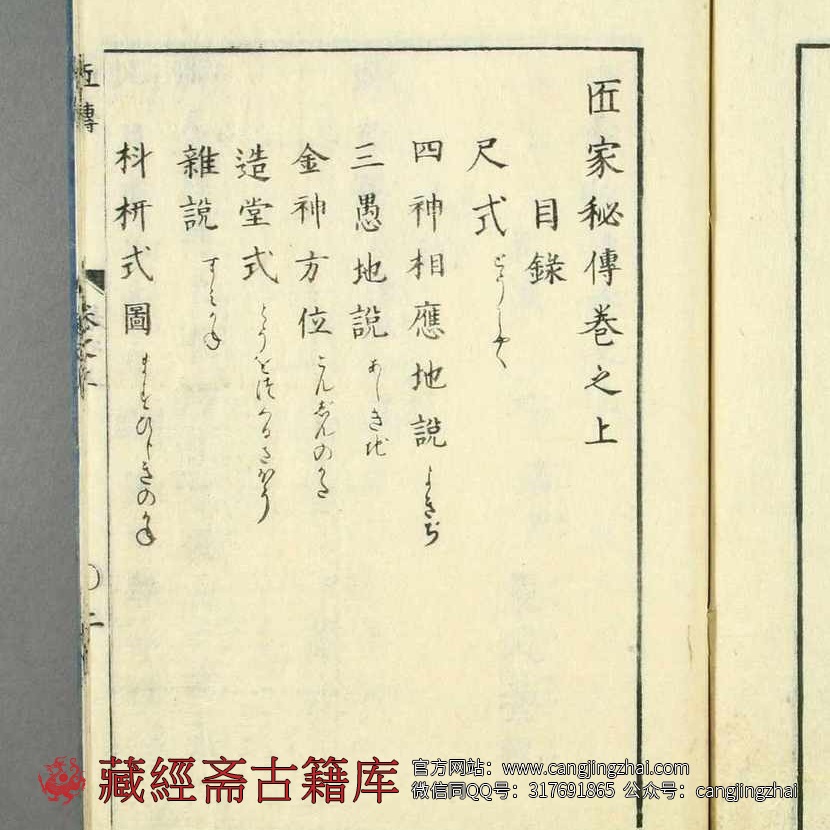 匠家秘傳巻之上
目錄
尺式
四神相應地說 よきぢ
三愚地說 あしき地
金神方位 こんじんのかた
造堂式
雜說
枓枅式圖
匠傳
二
藏經斋古籍库
官方网站：www.cangjingzhai.com
微信同QQ号：317691865 公众号：cangjingzhai